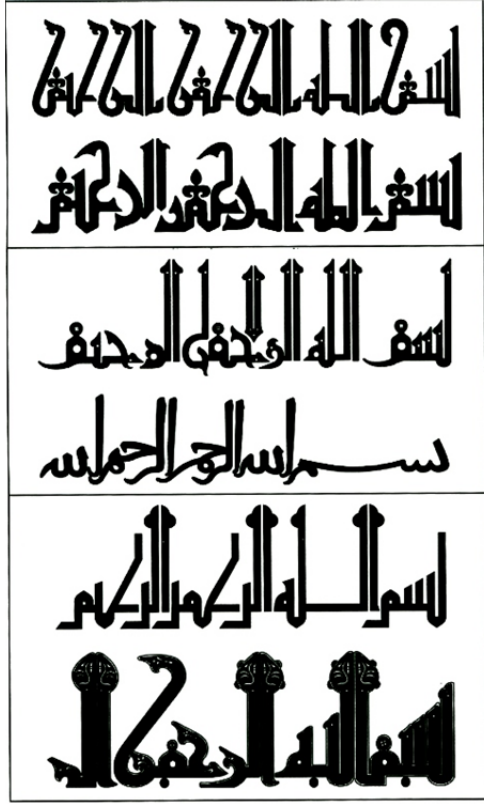 بسم الله الرحمن الرحيم
بسم الله الرحمن الرحيم
بسم الله الرحمن الرحيم
بسم الله الرحمن الرحيم
بسم الله الرحمن الرحيم
بسم الله الرحمن الر